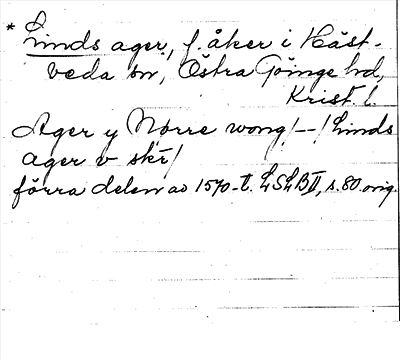 * Linds ager, f. åker i Häst-
veda sn, Östra Göinge hd,
Krist. l.
Ager y Nørre wong/--/Linds
ager v skr/
förra delen av 1570-t. LSLB II, s. 80. orig.